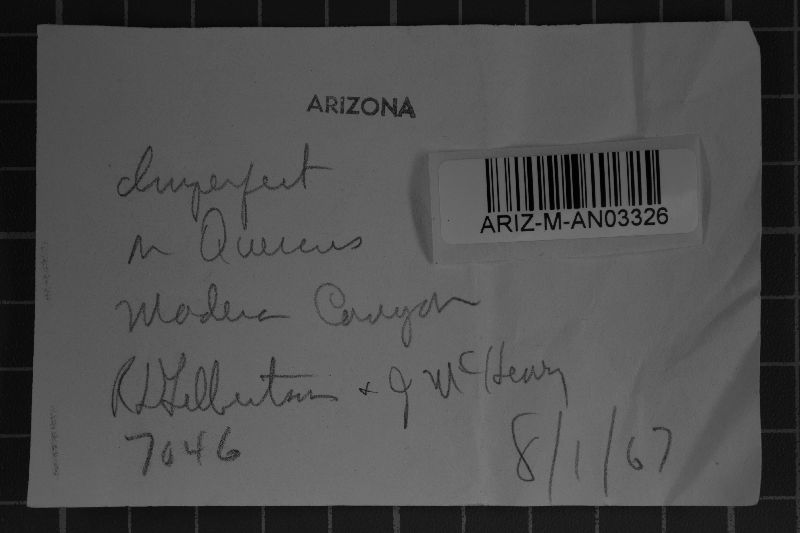 ARIZONA
Imperfect
on Quercus
Madera Canyon
RLGilbertson + J McHenry
7046
8/1/67
ARIZ-M-AN03326